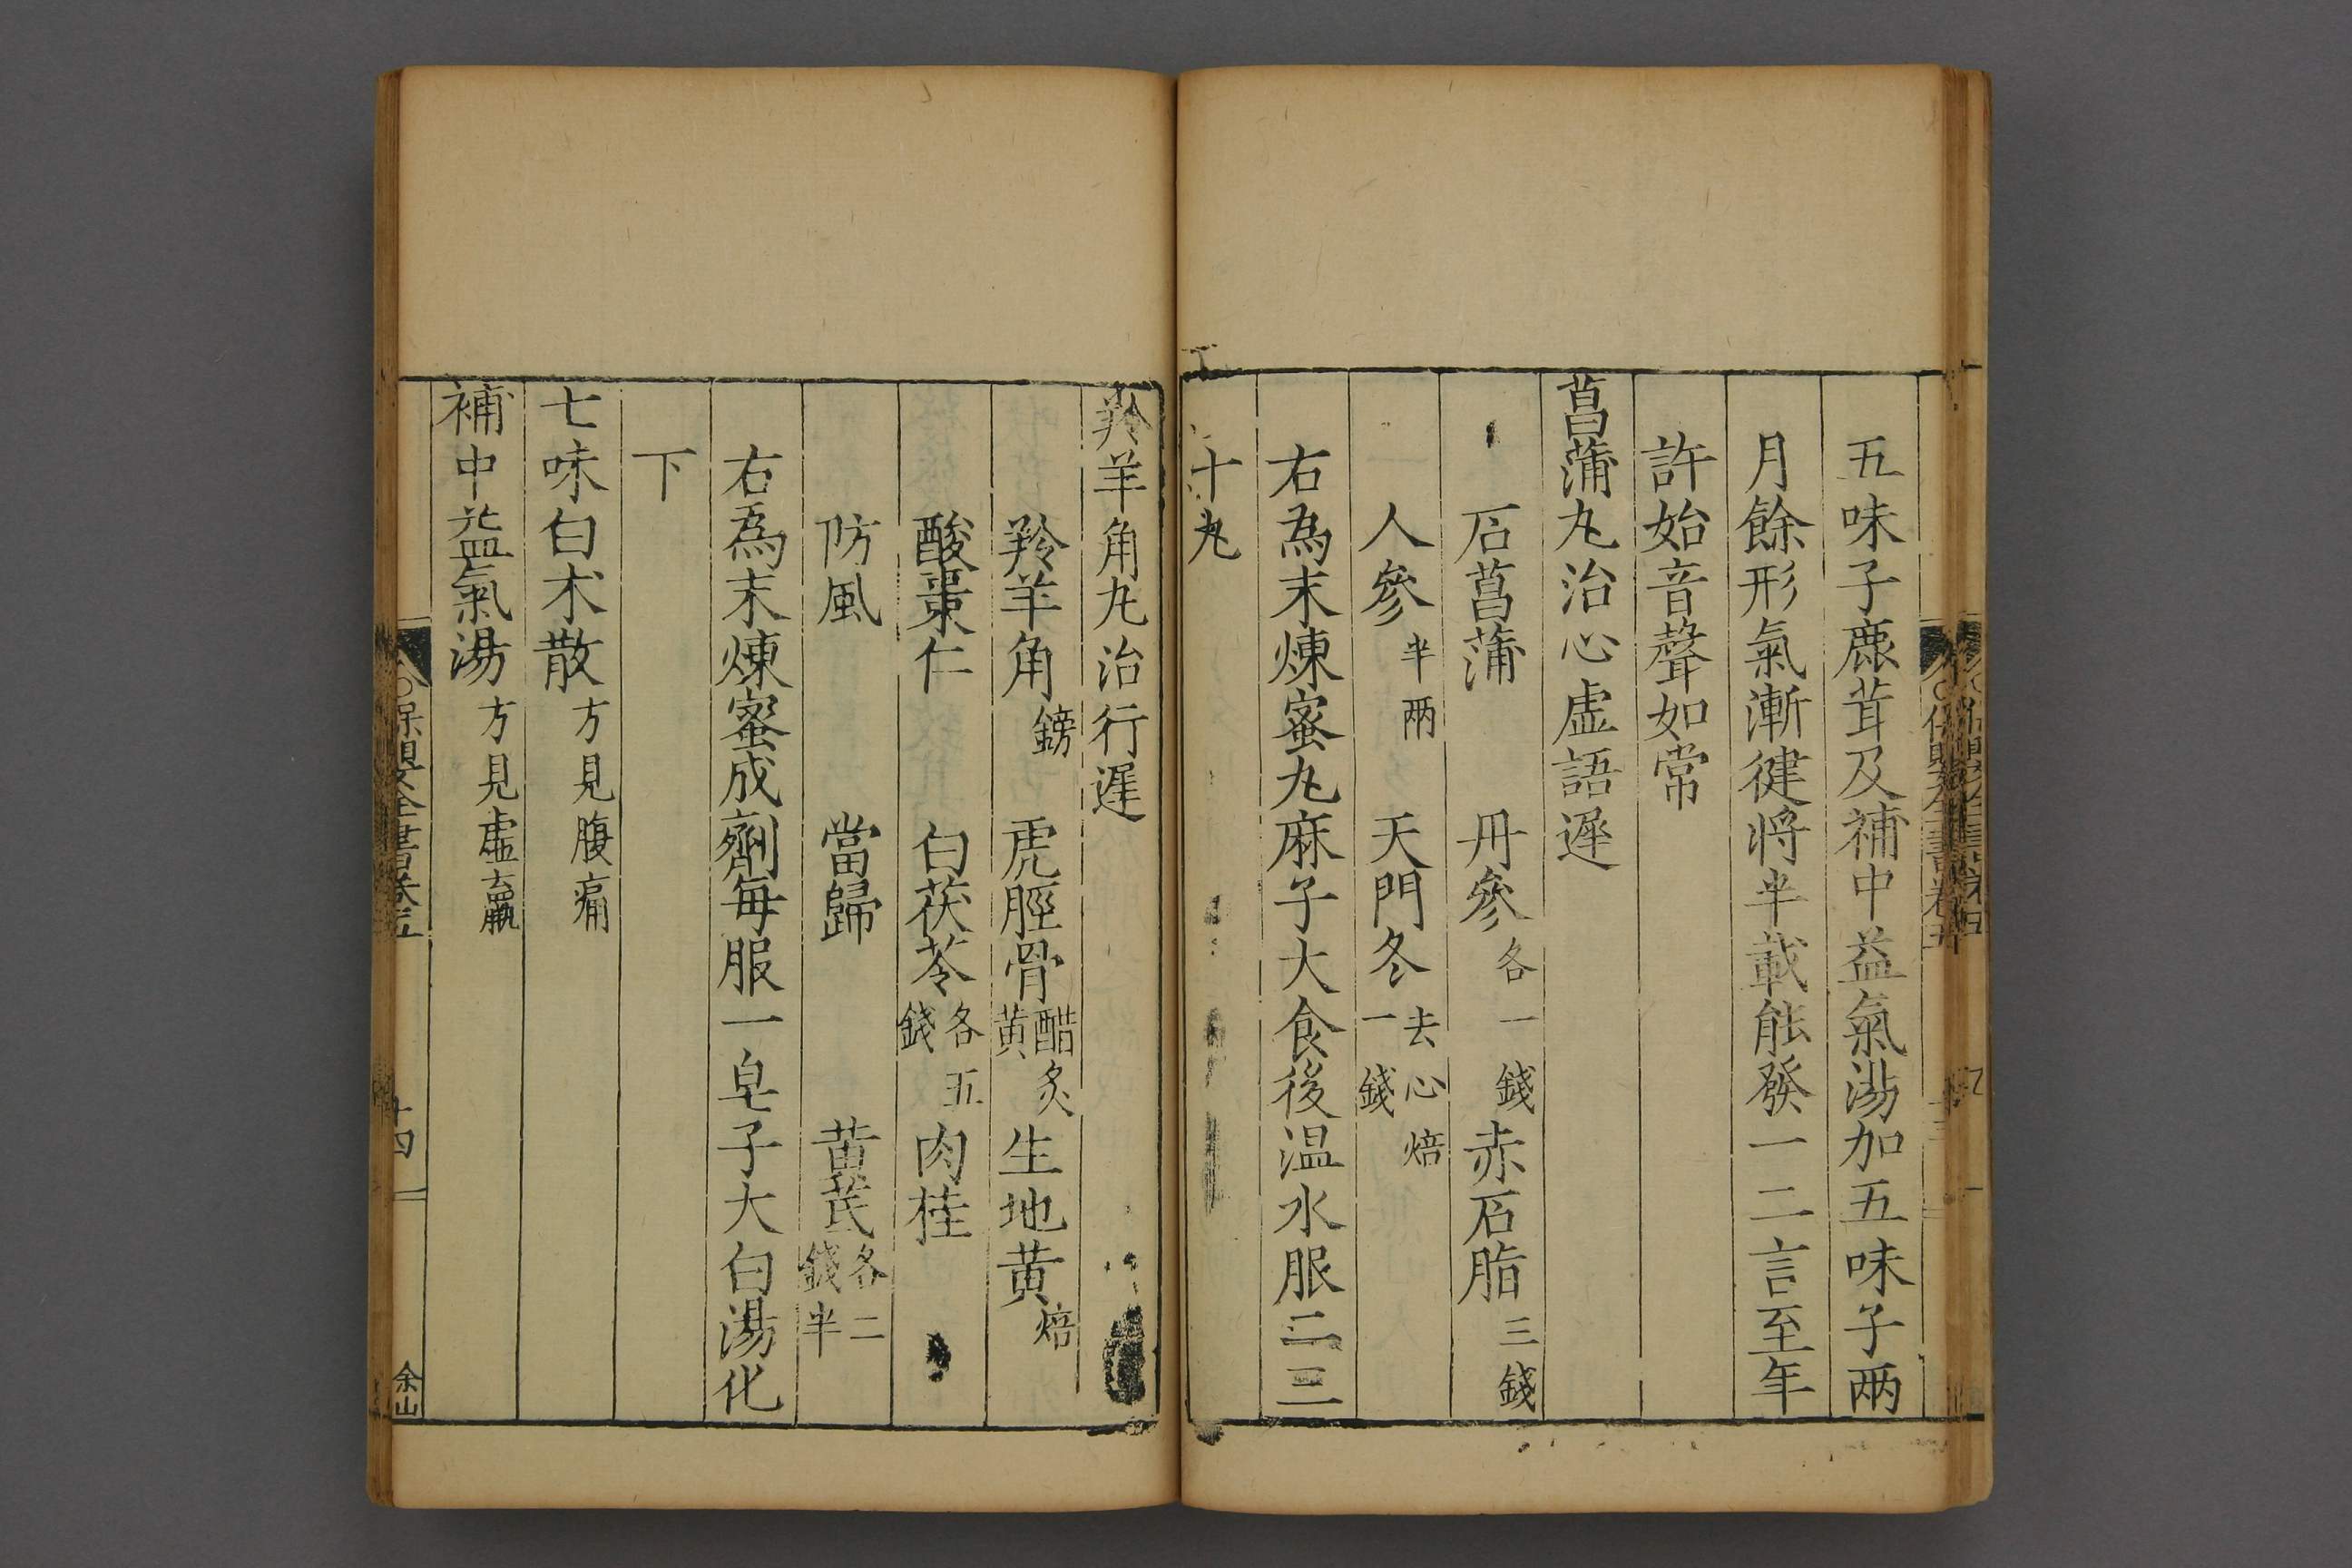 五味子鹿茸及補中益氣湯加五味子兩
月餘形氣漸健將半載能發一二言至年
許始音聲如常
菖蒲丸治心虛語遲
石菖蒲 丹參各一錢 赤石脂三錢
人參半兩 天門冬去心焙一錢
右為末煉蜜丸麻子大食後温水服二三
十丸
羚羊角丸治行遲
羚羊角鎊 虎脛骨醋炙黄 生地黄焙
酸棗仁 白茯苓各五錢 肉桂
防風 當歸 黄茋各二錢半
右為末煉蜜成劑每服一皂子大白湯化
下
七味白朮散方見腹痛
補中益氣湯方見虛羸
保嬰全書卷五
十四
余山